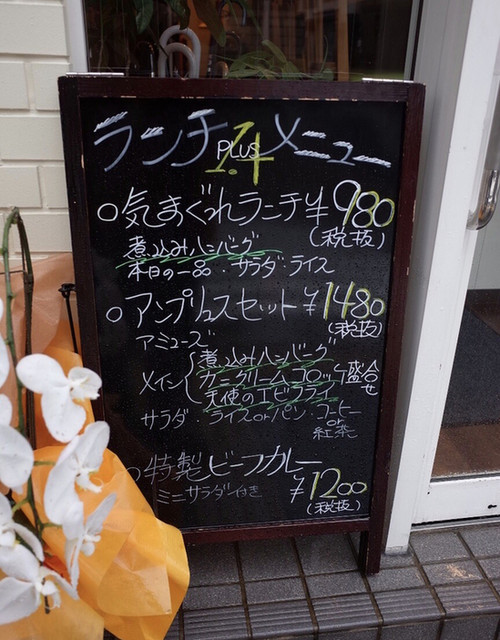 ランチメニュー
PLUS
1.4
○気まぐれランチ ¥980
(税抜)
煮込みハンバーグ
本日の一品・サラダ・ライス
○アンプリュスセット ¥1480
(税抜)
アミューズ
メイン{煮込みハンバーグ
カニクリームコロッケ 盛合せ
天使のエビフライ
サラダ・ライスorパン・コーヒー
or
紅茶
○特製ビーフカレー
ミニサラダ付き ¥1200
(税抜)